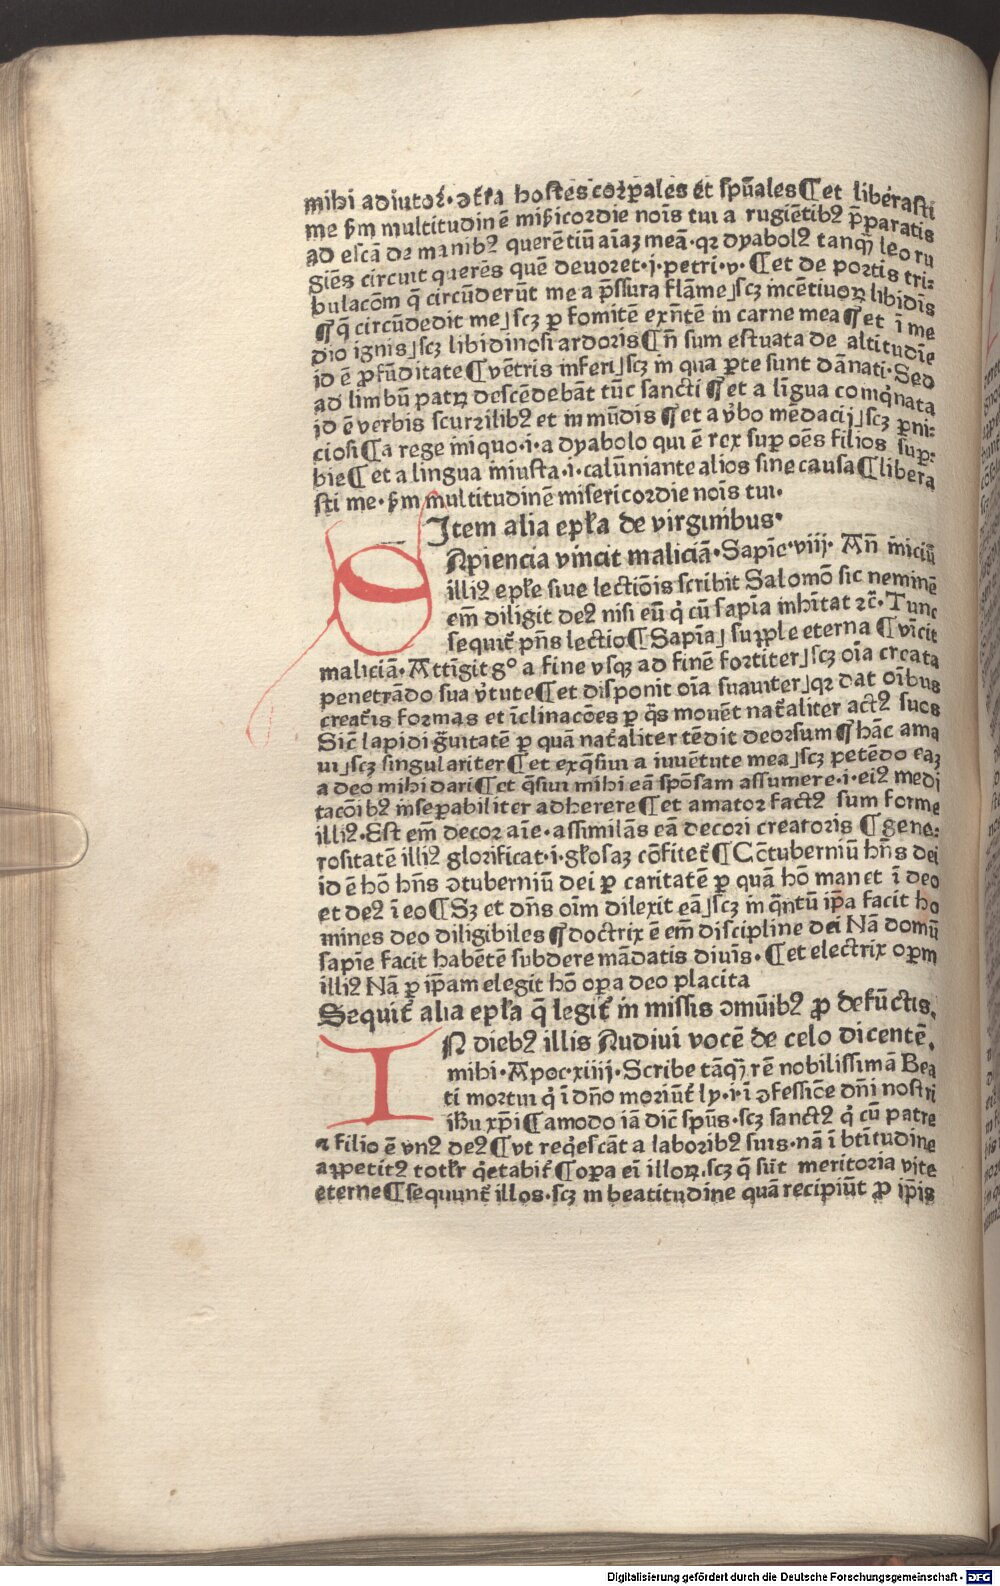 mihi adiutoꝛ̄·ↄt̄ra hostes coꝛꝑales et spūales¶et liberasti
me ẜm multitudinē mīẜicoꝛdie noīs tui a rugiētibꝰ p̄paratis
ad escā de manibꝰ querētiū aīaꝫ meā·qꝛ dyabolꝰ tanqꝫ̄ leo ru
giēs circuit querēs quē deuoret·j·petri·v·¶et de poꝛtis tri⸗
bulacōm q̄ circūderūt me a p̄ssura flāme⸥scꝫ incētiuoꝝ libidīs
¶q̄ circūdedit me⸥scꝫ ꝑ fomitē exn̄tē in carne mea¶et ī me
dio ignis⸥scꝫ libidinosi ardoris¶n̄ sum estuata de altitudīe
id ē ꝓfūditate¶vētris inferi⸥scꝫ in qua ꝑte sunt dānati·Sed
ad limbū patꝝ descēdebāt tūc sancti¶et a līgua coīqͥnata
id ē verbis scurrilibꝰ et in mūdis¶et a v̓bo mēdacij⸥scꝫ ꝑni⸗
ciosi¶a rege iniquo·i·a dyabolo qui ē rex suꝑ oēs filios suꝑ⸗
bie¶et a lingua iniusta·i·calūniante alios sine causa¶libera
sti me·ẜm multitudinē misericoꝛdie noīs tui·
Item alia epl̄a de virginibus·
Apiencia vincit maliciā·Sapīe·viij·An̄ īniciū
illiꝰ epl̄e siue lectiōis scribit Salomō sic neminē
em̄ diligit deꝰ nisi eū qͥ cū sapīa inhītat ⁊c̄·Tunc
sequit᷑ pn̄s lectio¶Sapīa⸥ suꝛple eterna¶vīcit
maliciā·Attīgit gͦ a fine vsqꝫ ad finē foꝛtiter⸥scꝫ oīa creata
penetrādo sua v̓tute¶et disponit oīa suauiter⸥qꝛ dat oībus
creat᷑is foꝛmas et īclinacōes ꝑ q̄s mouēt nat᷑aliter actꝰ suos
Sic̄ lapidi gͣuitatē ꝑ quā nat᷑aliter tēdit deoꝛsum¶hāc ama
ui⸥scꝫ singulariter¶et exqͥsiui a iuuētute mea⸥scꝫ petēdo eaꝫ
a deo mihi dari¶et qͥsiui mihi eā spōsam assumere·i·eiꝰ medi
tacōibꝰ īnseꝑabiliter adherere¶et amatoꝛ factꝰ sum foꝛme
illiꝰ·Est em̄ decoꝛ aīe·assimilās eā decoꝛi creatoꝛis¶gene⸗
rositatē illiꝰ gloꝛificat·i·gl̄osaꝫ cōfitet᷑¶Cōtuberniū hn̄s dei
id ē hō hn̄s ↄtuberniū dei ꝑ caritatē ꝑ quā hō manet ī deo
et deꝰ ī eo¶Sꝫ et dn̄s oīm dilexit eā⸥scꝫ in qͣntū ip̄a facit ho
mines deo diligibiles¶doctrix ē em̄ discipline dei Nā domū
sapīe facit habētē subdere mādatis diuīs·¶et electrix oꝑm
illiꝰ Nā ꝑ ip̄am elegit hō oꝑa deo placita
Sequit᷑ alia epl̄a q̄ legit᷑ in missis ↄmūibꝰ ꝓ defūctis·
N diebꝰ illis Audiui vocē de celo dicentē·
mihi·Apoc·xiiij·Scribe tāqꝫ̄ rē nobilissimā Bea
ti moꝛtui qͥ ī dn̄o moꝛiūt᷑ ly·i·ī ↄfessiōe dn̄i nostri
ihu xp̄i¶amodo iā dic̄ spūs·scꝫ sanctꝰ qͥ cū patre
⁊ filio ē vnꝰ deꝰ¶vt reqͥescāt a laboꝛibꝰ suis·nā ī btītudine
appetitꝰ totl̄r qͥetabit᷑¶oꝑa eī illoꝝ·scꝫ q̄ sūt meritoꝛia vite
eterne¶sequunt᷑ illos·scꝫ in beatitudine quā recipiūt ꝓ ip̄is
Digitalisierung gefördert durch die Deutsche Forschungsgemeinschaft · DFG